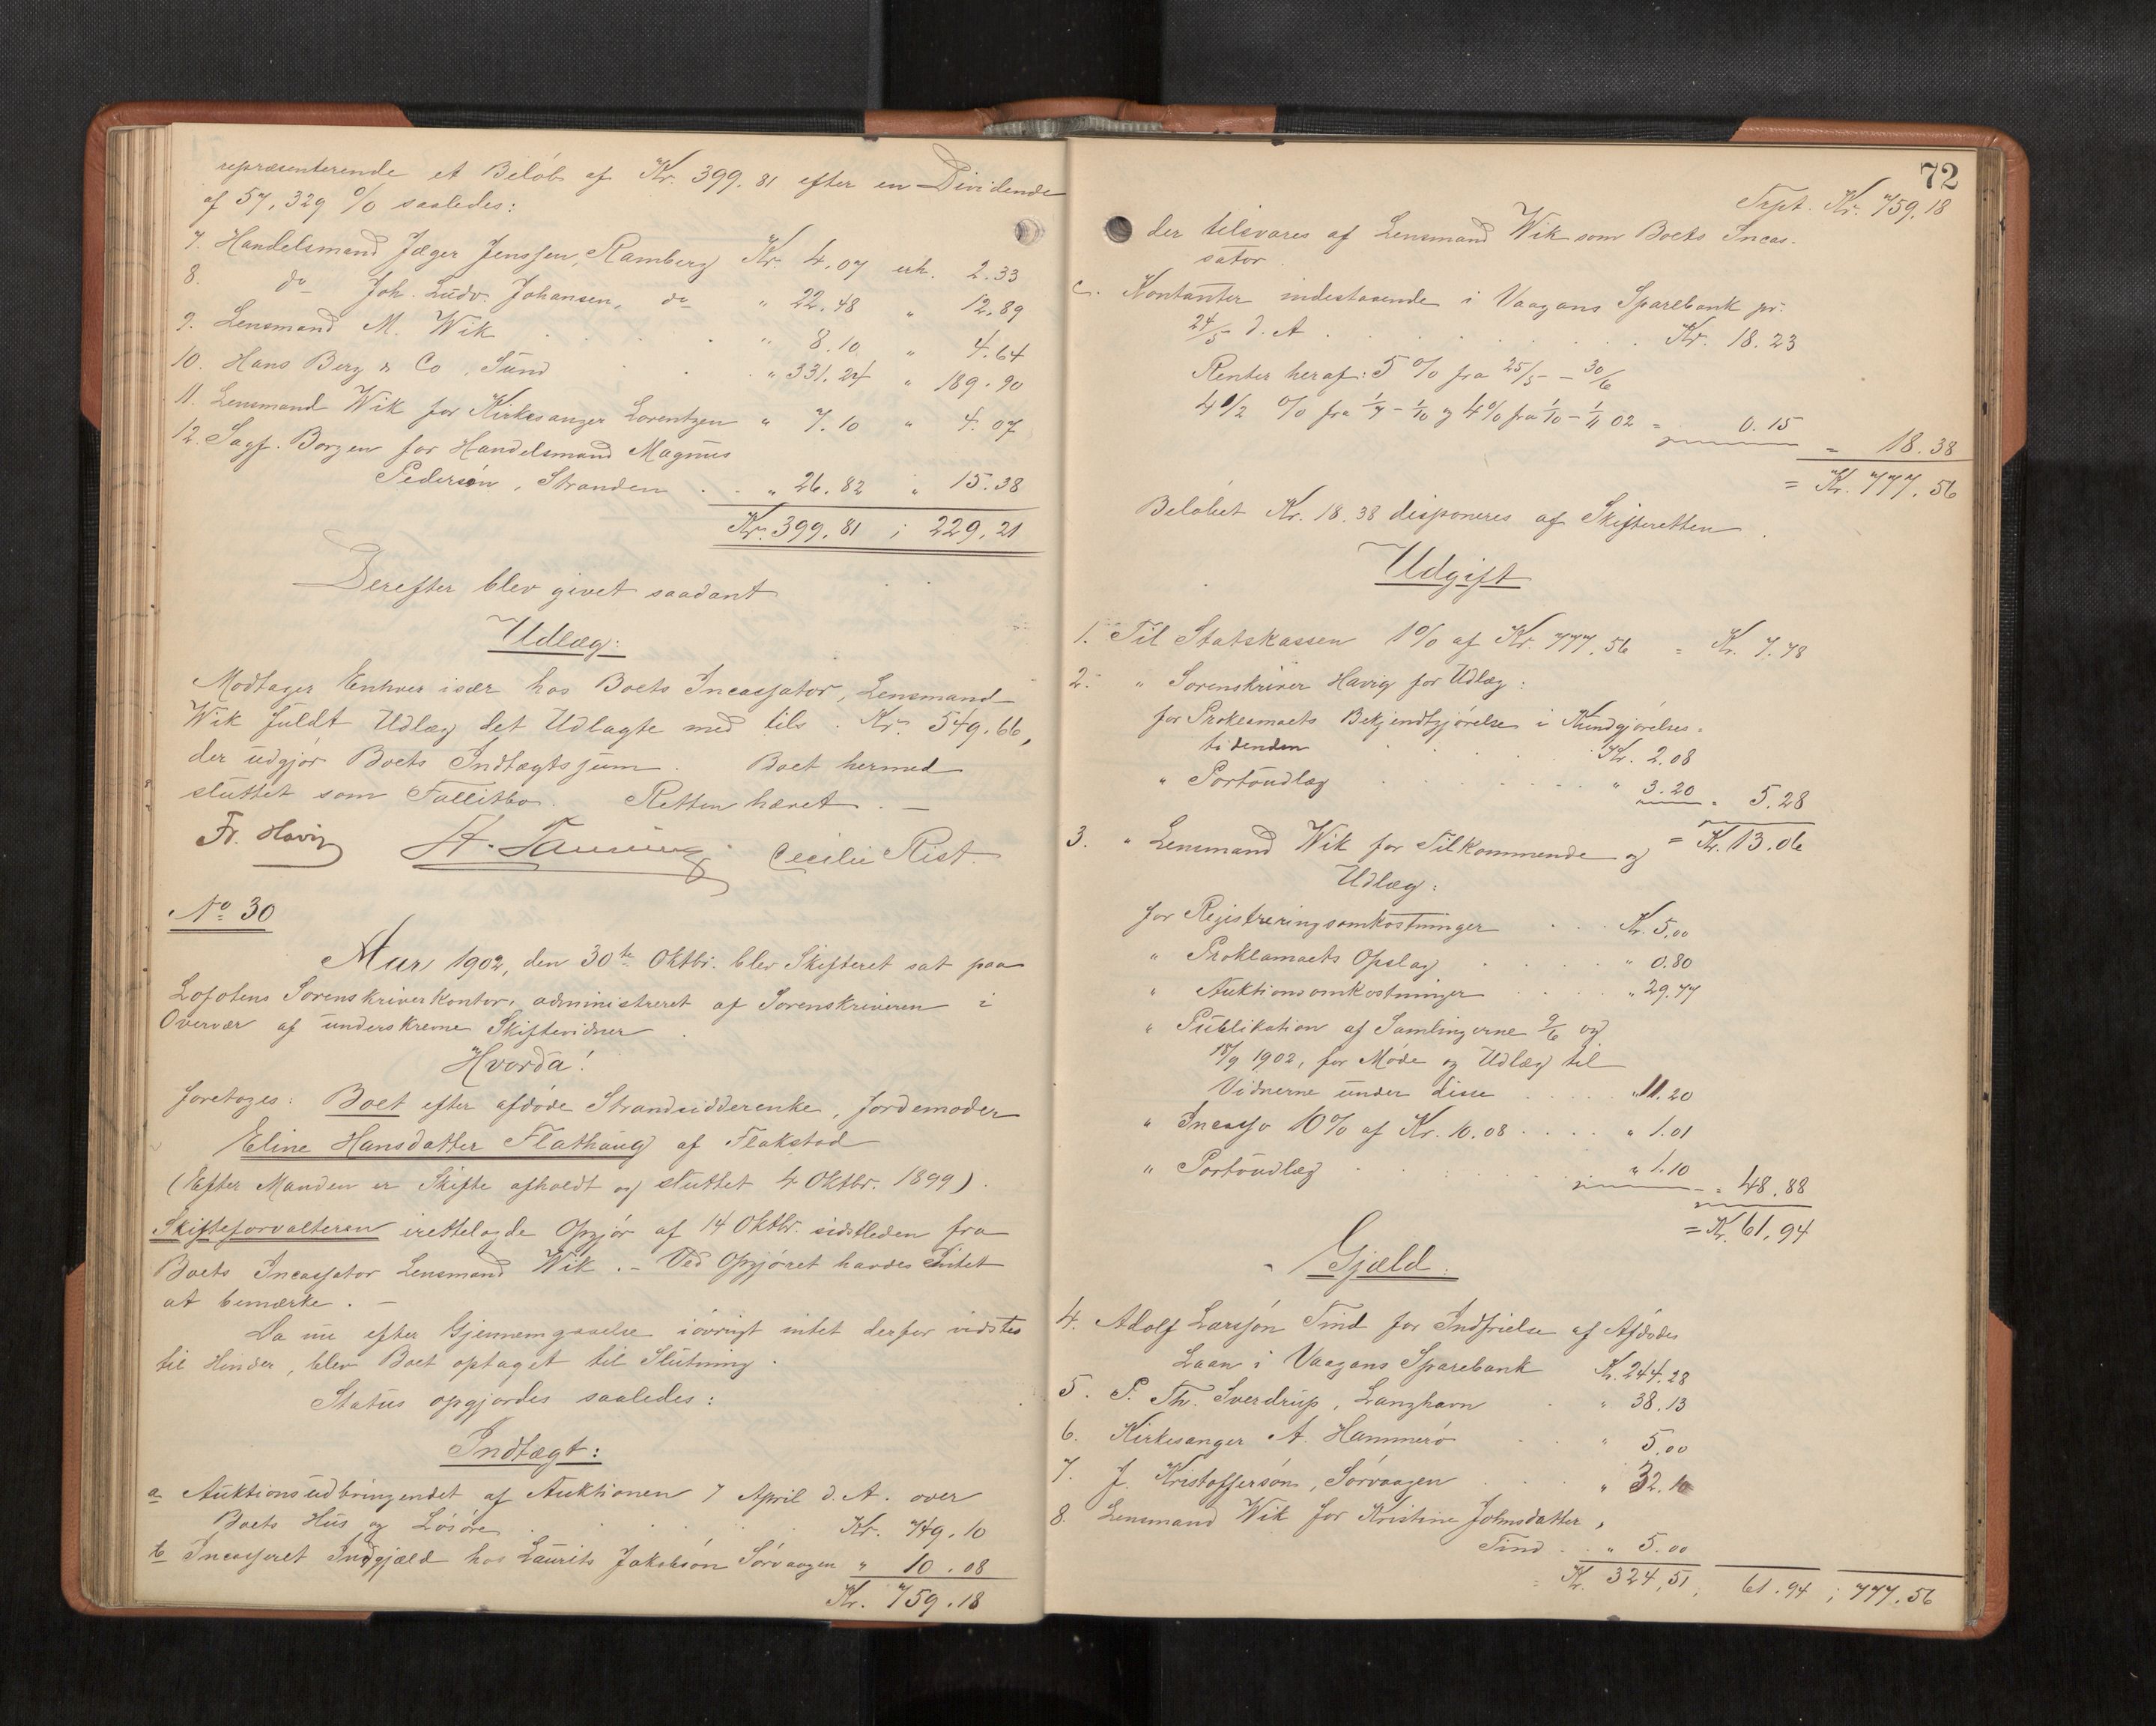 repræsenterende et Beløb af Kr. 399.81 efter en Dividende
af 57,329 % saaledes:
7. Handelsmand Jæger Jenssen, Ramberg Kr. 4.07 erh. 2.33
8. do Joh. Ludv. Johansen, do " 22.48 " 12.89
9. Lensmand M. Wik " 8.10 " 4.64
10. Hans Berg & Co, Sund " 331.24 " 189.90
11. Lensmand Wik for Kirkesanger Lorentzen " 7.10 " 4.07
12. Sagf. Borgen for Handelsmand Magnus
Pedersen, Stranden " 26.82 " 15.38
Kr. 399.81 ; 229.21
Derefter blev givet saadant
Udlæg:
Modtager Enhver især hos Boets Incassator, Lensmand
Wik fuldt Udlæg det Udlagte med tils. Kr. 549.66,
der udgjør Boets Indtægtssum. Boet hermed
sluttet som Fallitbo. Retten hævet. —
Fr. Havig Cecilie Rist.
No 30
Aar 1902, den 30te Oktbr. blev Skifteret sat paa
Lofotens Sorenskriverkontor, administreret af Sorenskriveren i
Overvær af underskrevne Skiftevidner.
Hvorda!
foretoges: Boet efter afdøde Strandsidderenke, Jordemoder
Eline Hansdatter Flathaug af Flakstad
(Efter Manden er Skifte afholdt og sluttet 4 Oktbr. 1899).
Skifteforvalteren irettelagde Opgjør af 14 Oktbr. sidstleden fra
Boets Incassator Lensmand Wik. – Ved Opgjøret havdes Intet
at bemærke. –
Da nu efter Gjennemgaaelse iøvrigt intet derfor vidstes
til Hinder, blev Boet optaget til Slutning.
Status opgjordes saaledes:
Indtægt:
a Auktionsudbringendet af Auktionen 7 April d. A. over
Boets Hus og Løsøre Kr. 749.10
b Incasseret Indgjæld hos Laurits Jakobsen Sørvaagen " 10.08
Kr. 759.18
72
Trpt. Kr. 759.18
der tilsvares af Lensmand Wik som Boets Incas-
sator.
c. Kontanter indestaaende i Vaagans Sparebank pr.
24/5 d. A. Kr. 18.23
Renter heraf: 5 % fra 25/5 – 30/6
4 1/2 % fra 1/7 – 1/10 og 4% fra 1/10 – 1/11 02 = 0.15 = 18.38
= Kr. 777.56
Beløbet Kr. 18.38 disponeres af Skifteretten.
Udgift
1. Til Statskassen 1% af Kr. 777.56 = Kr. 7.78
2. " Sorenskriver Havig for Udlæg:
for Proklamaets Bekjendtgjørelse i Kundgjørelses-
tidenden Kr. 2.08
" Portoudlæg " 3.20 = 5.28
= Kr. 13.06
3. " Lensmand Wik for Tilkommende og
Udlæg:
for Registreringsomkostninger Kr. 5.00
" Proklamaets Opslag " 0.80
" Auktionsomkostninger " 29.77
" Publikation af Samlingerne 9/6 og
15/9 1902, for Møde og Udlæg til
Vidnerne under disse " 11.20
" Incasso 10% af Kr. 10.08 " 1.01
" Portoudlæg " 1.10 = 48.88
= Kr. 61.94
Gjæld.
4. Adolf Larssøn Tind for Indfrielse af Afdødes
Laan i Vaagans Sparebank Kr. 244.28
5. P. Th. Sverdrup, Langhavn " 38.13
6. Kirkesanger A. Hammerø " 5.00
7. J. Kristoffersøn, Sørvaagen " 32.10
8. Lensmand Wik for Kristine Johnsdatter,
Tind " 5.00
= Kr. 324,51, 61.94 ; 777.56